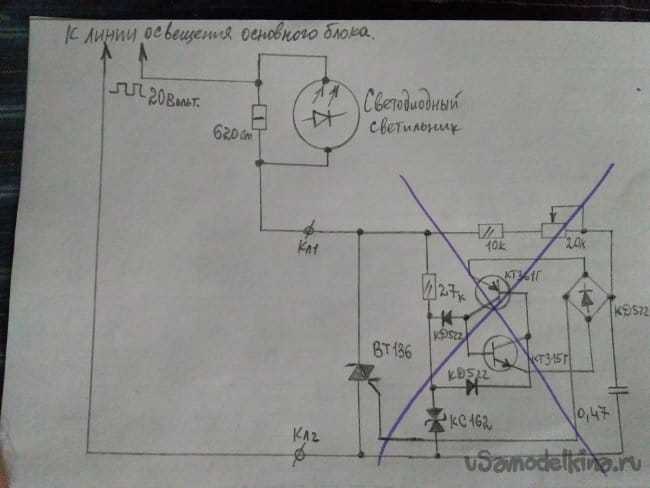 К линии освещения основного блока.
20Вольт.
620m
Светодиодный
светильник
Кл1
10к
20к
КТ361Г
2.7к
КD522
КD522
КТ315Г
ВТ136
КD522
КС162
0,47
Кл2
vSamodelkina.ru